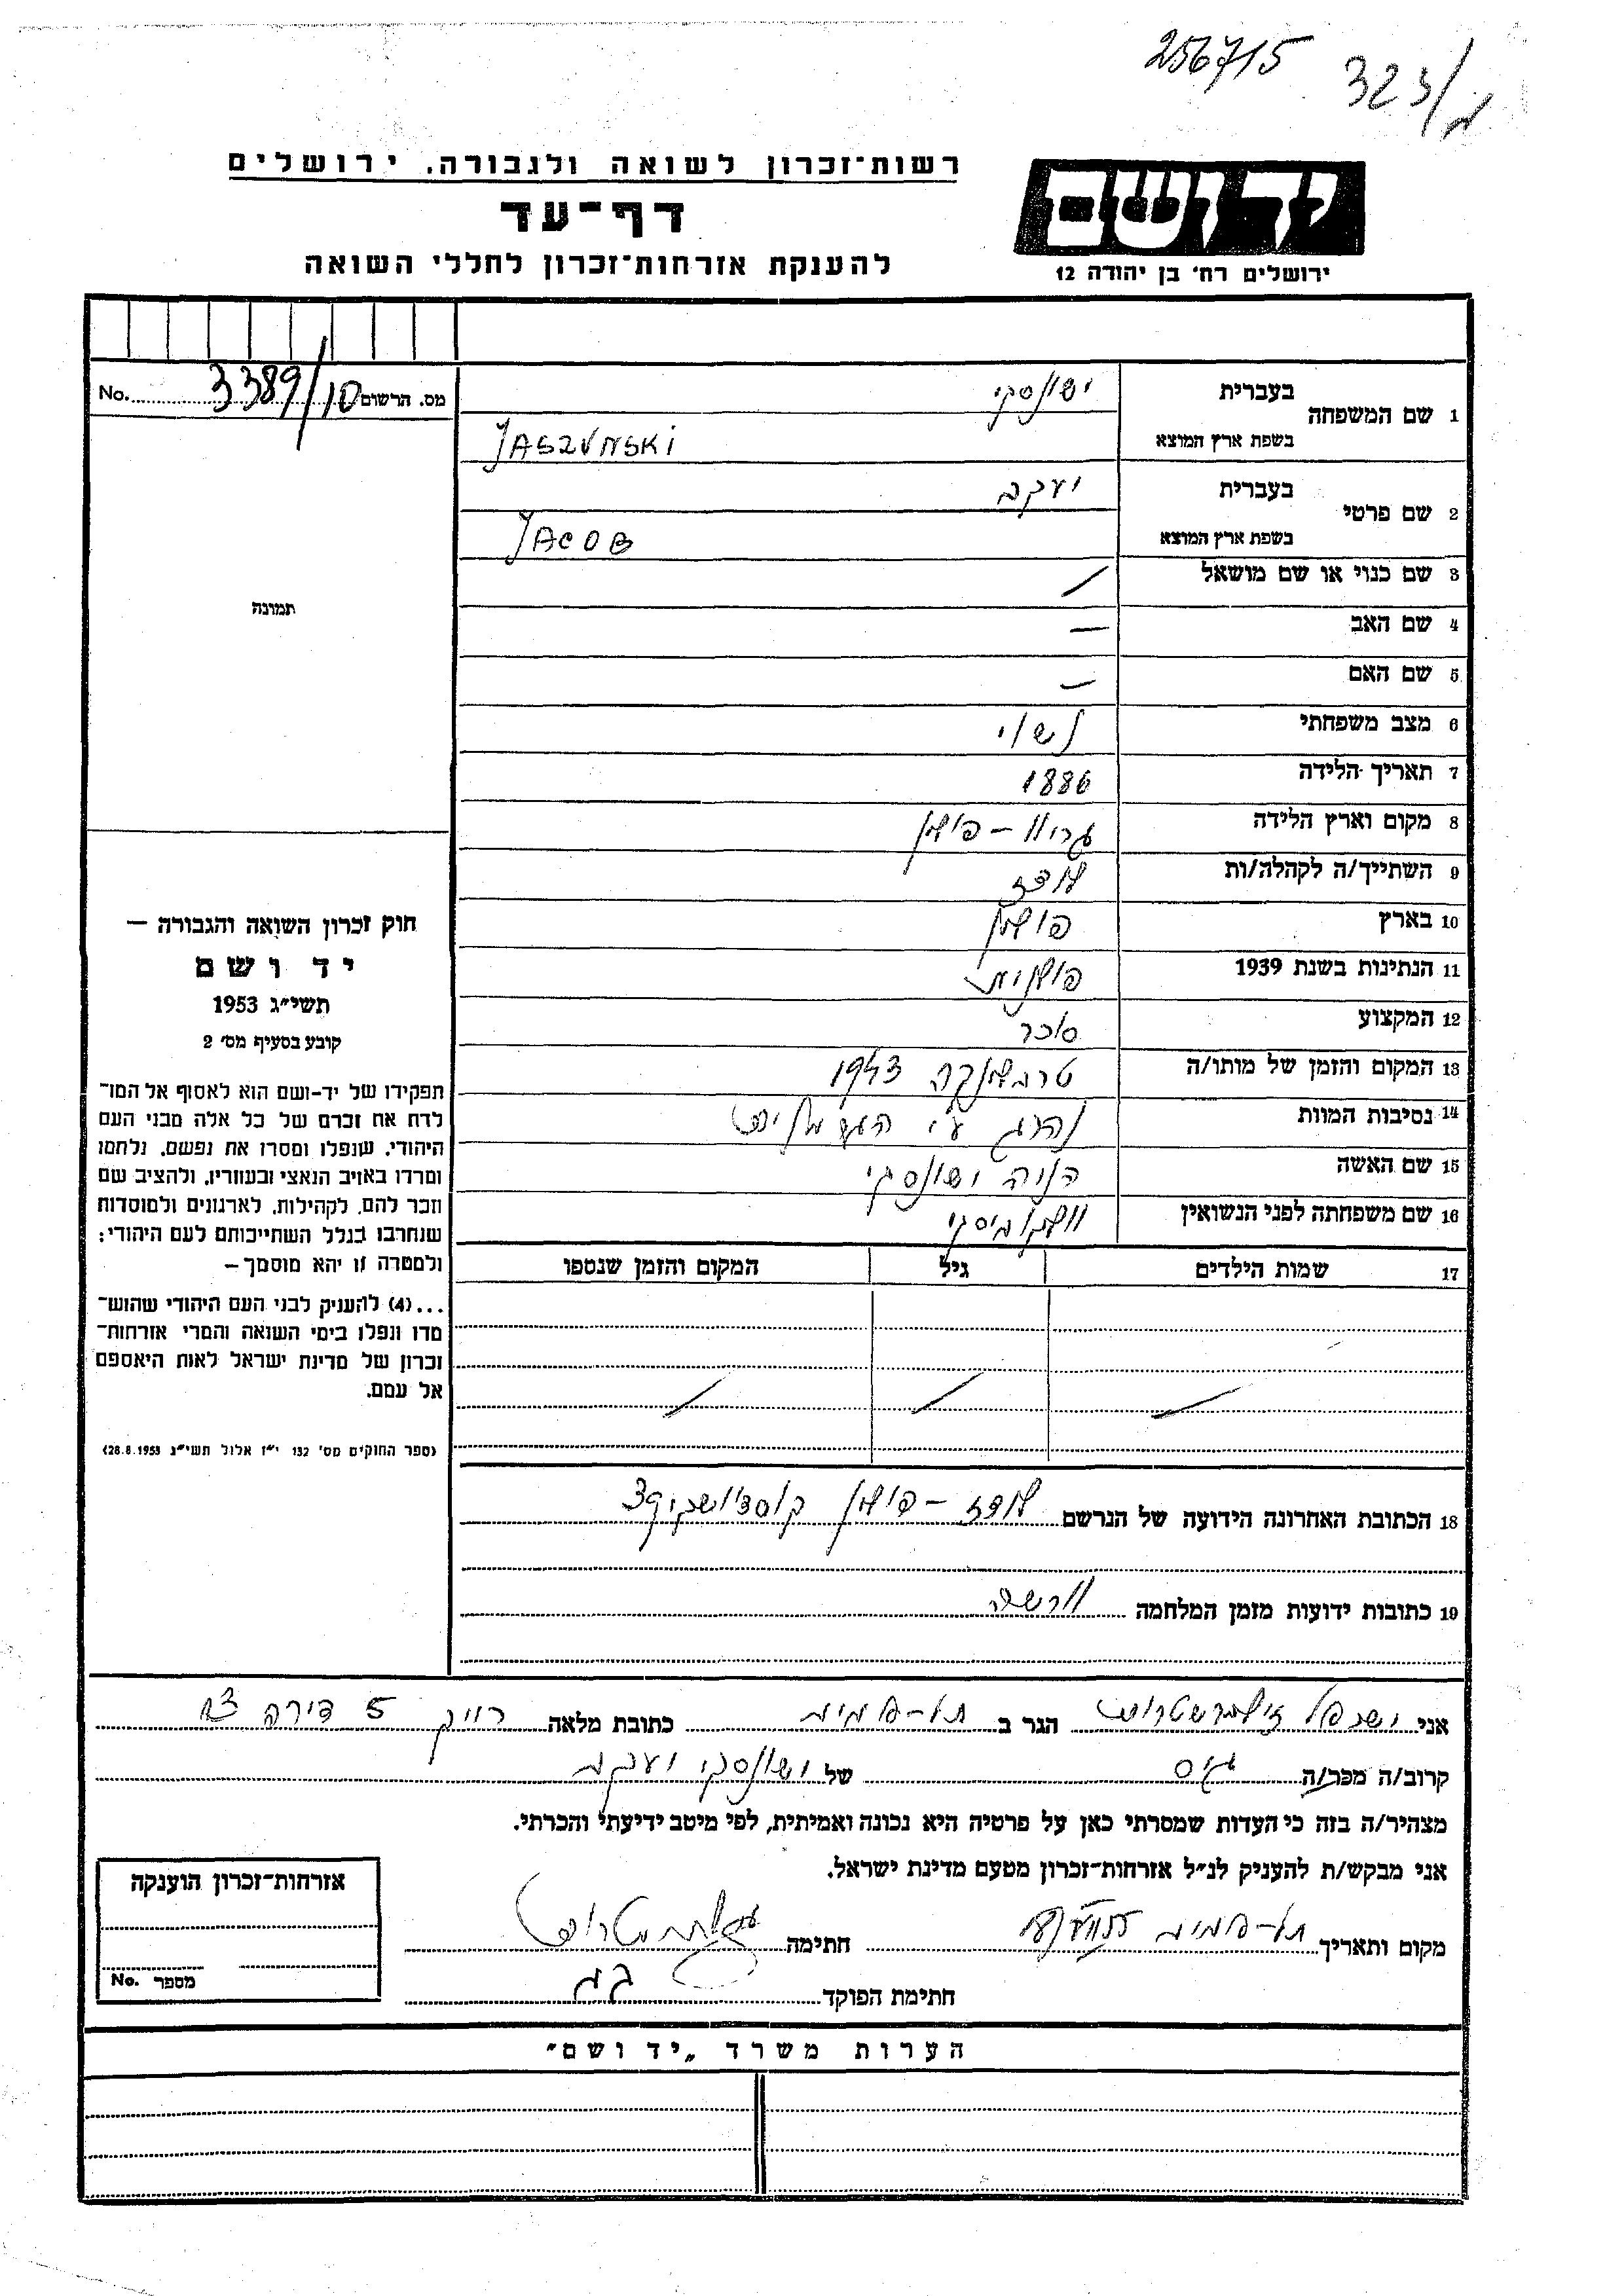 256715
323/מ
רשות־זכרון לשואה ולגבורה, ירושלים
דף־עד
להענקת אזרחות־זכרון לחללי השואה
יד ושם
ירושלים רח' בן יהודה 12
No. 3389/10 מס. הרשום
תמונה
חוק זכרון השואה והגבורה —
יד ושם
תשי״ג 1953
קובע בסעיף מס' 2
תפקידו של יד-ושם הוא לאסוף אל המו־
לדת את זכרם של כל אלה מבני העם
היהודי, שנפלו ומסרו את נפשם, נלחמו
ומרדו באויב הנאצי ובעוזריו, ולהציב שם
וזכר להם, לקהילות, לארגונים ולמוסדות
שנחרבו בגלל השתייכותם לעם היהודי;
ולמטרה זו יהא מוסמך —
...(4) להעניק לבני העם היהודי שהוש־
מדו ונפלו בימי השואה והמרי אזרחות־
זכרון של מדינת ישראל לאות היאספם
אל עמם.
(ספר החוקים מס' 132 י״ז אלול תשי״ג 28.8.1953)
1 שם המשפחה בעברית ישונסקי
בשפת ארץ המוצא JASZUNSKI
2 שם פרטי בעברית יעקב
בשפת ארץ המוצא JACOB
3 שם כנוי או שם מושאל /
4 שם האב —
5 שם האם —
6 מצב משפחתי נשוי
7 תאריך הלידה 1886
8 מקום וארץ הלידה – פולין
9 השתייך/ה לקהלה/ות לודז
10 בארץ פולין
11 הנתינות בשנת 1939 פולנית
12 המקצוע סוכר
13 המקום והזמן של מותו/ה טרבלינקה 1943
14 נסיבות המוות נהרג ע״י
15 שם האשה ישונסקי
16 שם משפחתה לפני הנשואין
17 שמות הילדים גיל המקום והזמן שנספו
/ / /
18 הכתובת האחרונה הידועה של הנרשם לודז – פולין
19 כתובות ידועות מזמן המלחמה וורשה
אני הגר ב כתובת מלאה 5 דירה
קרוב/ה מכר/ה גיס של ישונסקי יעקב
מצהיר/ה בזה כי העדות שמסרתי כאן על פרטיה היא נכונה ואמיתית, לפי מיטב ידיעתי והכרתי.
אני מבקש/ת להעניק לנ״ל אזרחות־זכרון מטעם מדינת ישראל.
מקום ותאריך חתימה
חתימת הפוקד
אזרחות־זכרון הוענקה
No. מספר
הערות משרד „יד ושם״